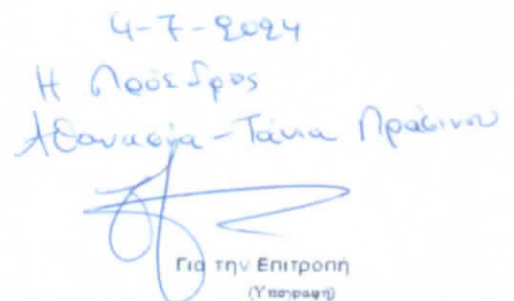 4-7-2024
Η Πρόεδρος
Αθανασία-Τάνια Πρασίνου
Για την Επιτροπή
(Υπογραφή)